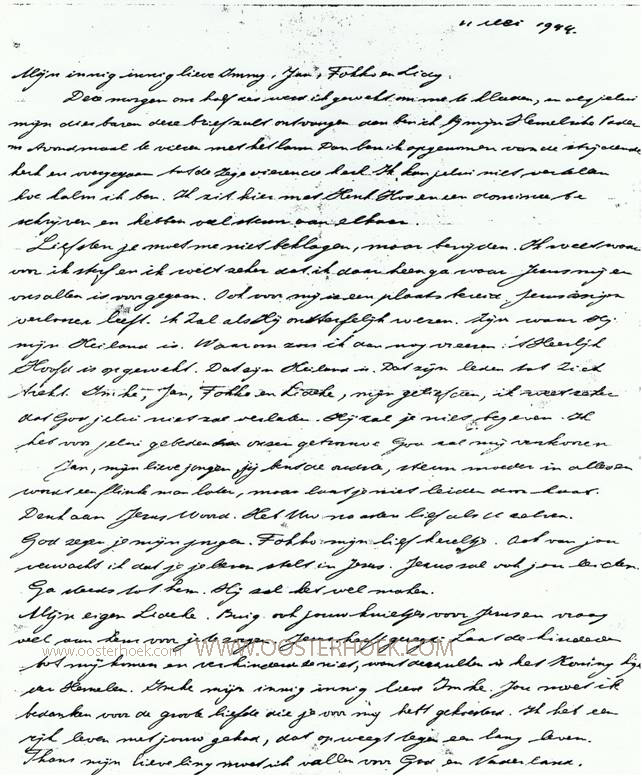 11 Mei 1944.
Mijn innig innig lieve Immy, Jan, Fokko en Lidy.
Deze morgen om half zes werd ik gewekt om me te kleden, en als jelui
mijn dierbaren deze brief zult ontvangen dan ben ik bij mijn Hemelsche Vader
Avondmaal te vieren met het lam. Dan ben ik opgenomen van de strijdende
kerk en overgegaan tot de zegevierende kerk. Ik kan jelui niet vertellen
hoe kalm ik ben. Ik zit hier met Henk en een dominee te
schrijven en hebben veel steun aan elkaar.
Liefsten je moet me niet beklagen, maar benijden. Ik weet waar
voor ik sterf en ik weet zeker dat ik daar heen ga waar Jezus mij en
ons allen is voorgegaan. Ook voor mij is een plaats bereid, Jezus mijn
verlosser leeft. 'k Zal als Hij onsterfelijk wezen. Zijn waar Hij
mijn Heiland is. Waarom zou ik dan nog vrezen. 't Heerlijk
Hoofd is opgewekt. Dat zijn Heiland is. Dat zijn leden tot Zich
trekt. Imke, Jan, Fokko en Lideke, mijn geliefden, ik weet zeker
dat God jelui niet zal verlaten. Hij zal je niet begeven. Ik
heb voor jelui gebeden en onzen getrouwe God zal mij verhooren
Jan, mijn lieve jongen, jij bent de oudste, steun moeder in alles en
wordt een flinke man later, maar laat je niet leiden door haat.
Denk aan Jezus Woord. Heb Uw naasten lief als U zelven.
God zegen je mijn jongen. Fokko mijn lief kereltje. Ook van jou
verwacht ik dat je je leven stelt in Jezus. Jezus zal ook jou leiden.
Ga steeds tot hem. Hij zal het wel maken.
Mijn eigen Lideke. Buig ook jouw knietjes voor Jezus en vraag
veel aan hem voor je te zorgen. Jezus heeft gezegd Laat de kinderen
www.oosterhoek.com WWW.OOSTERHOEK.COM
tot mij komen en verhindert ze niet, want derzulken is het Koning
der Hemelen. Imke mijn innig innig lieve Imke. Jou moet ik
bedanken voor de groote liefde die je voor mij hebt gekoesterd. Ik heb een
rijk leven met jouw gehad, dat opweegt tegen een lang leven.
Thans mijn lieveling moet ik vallen voor God en Vaderland.